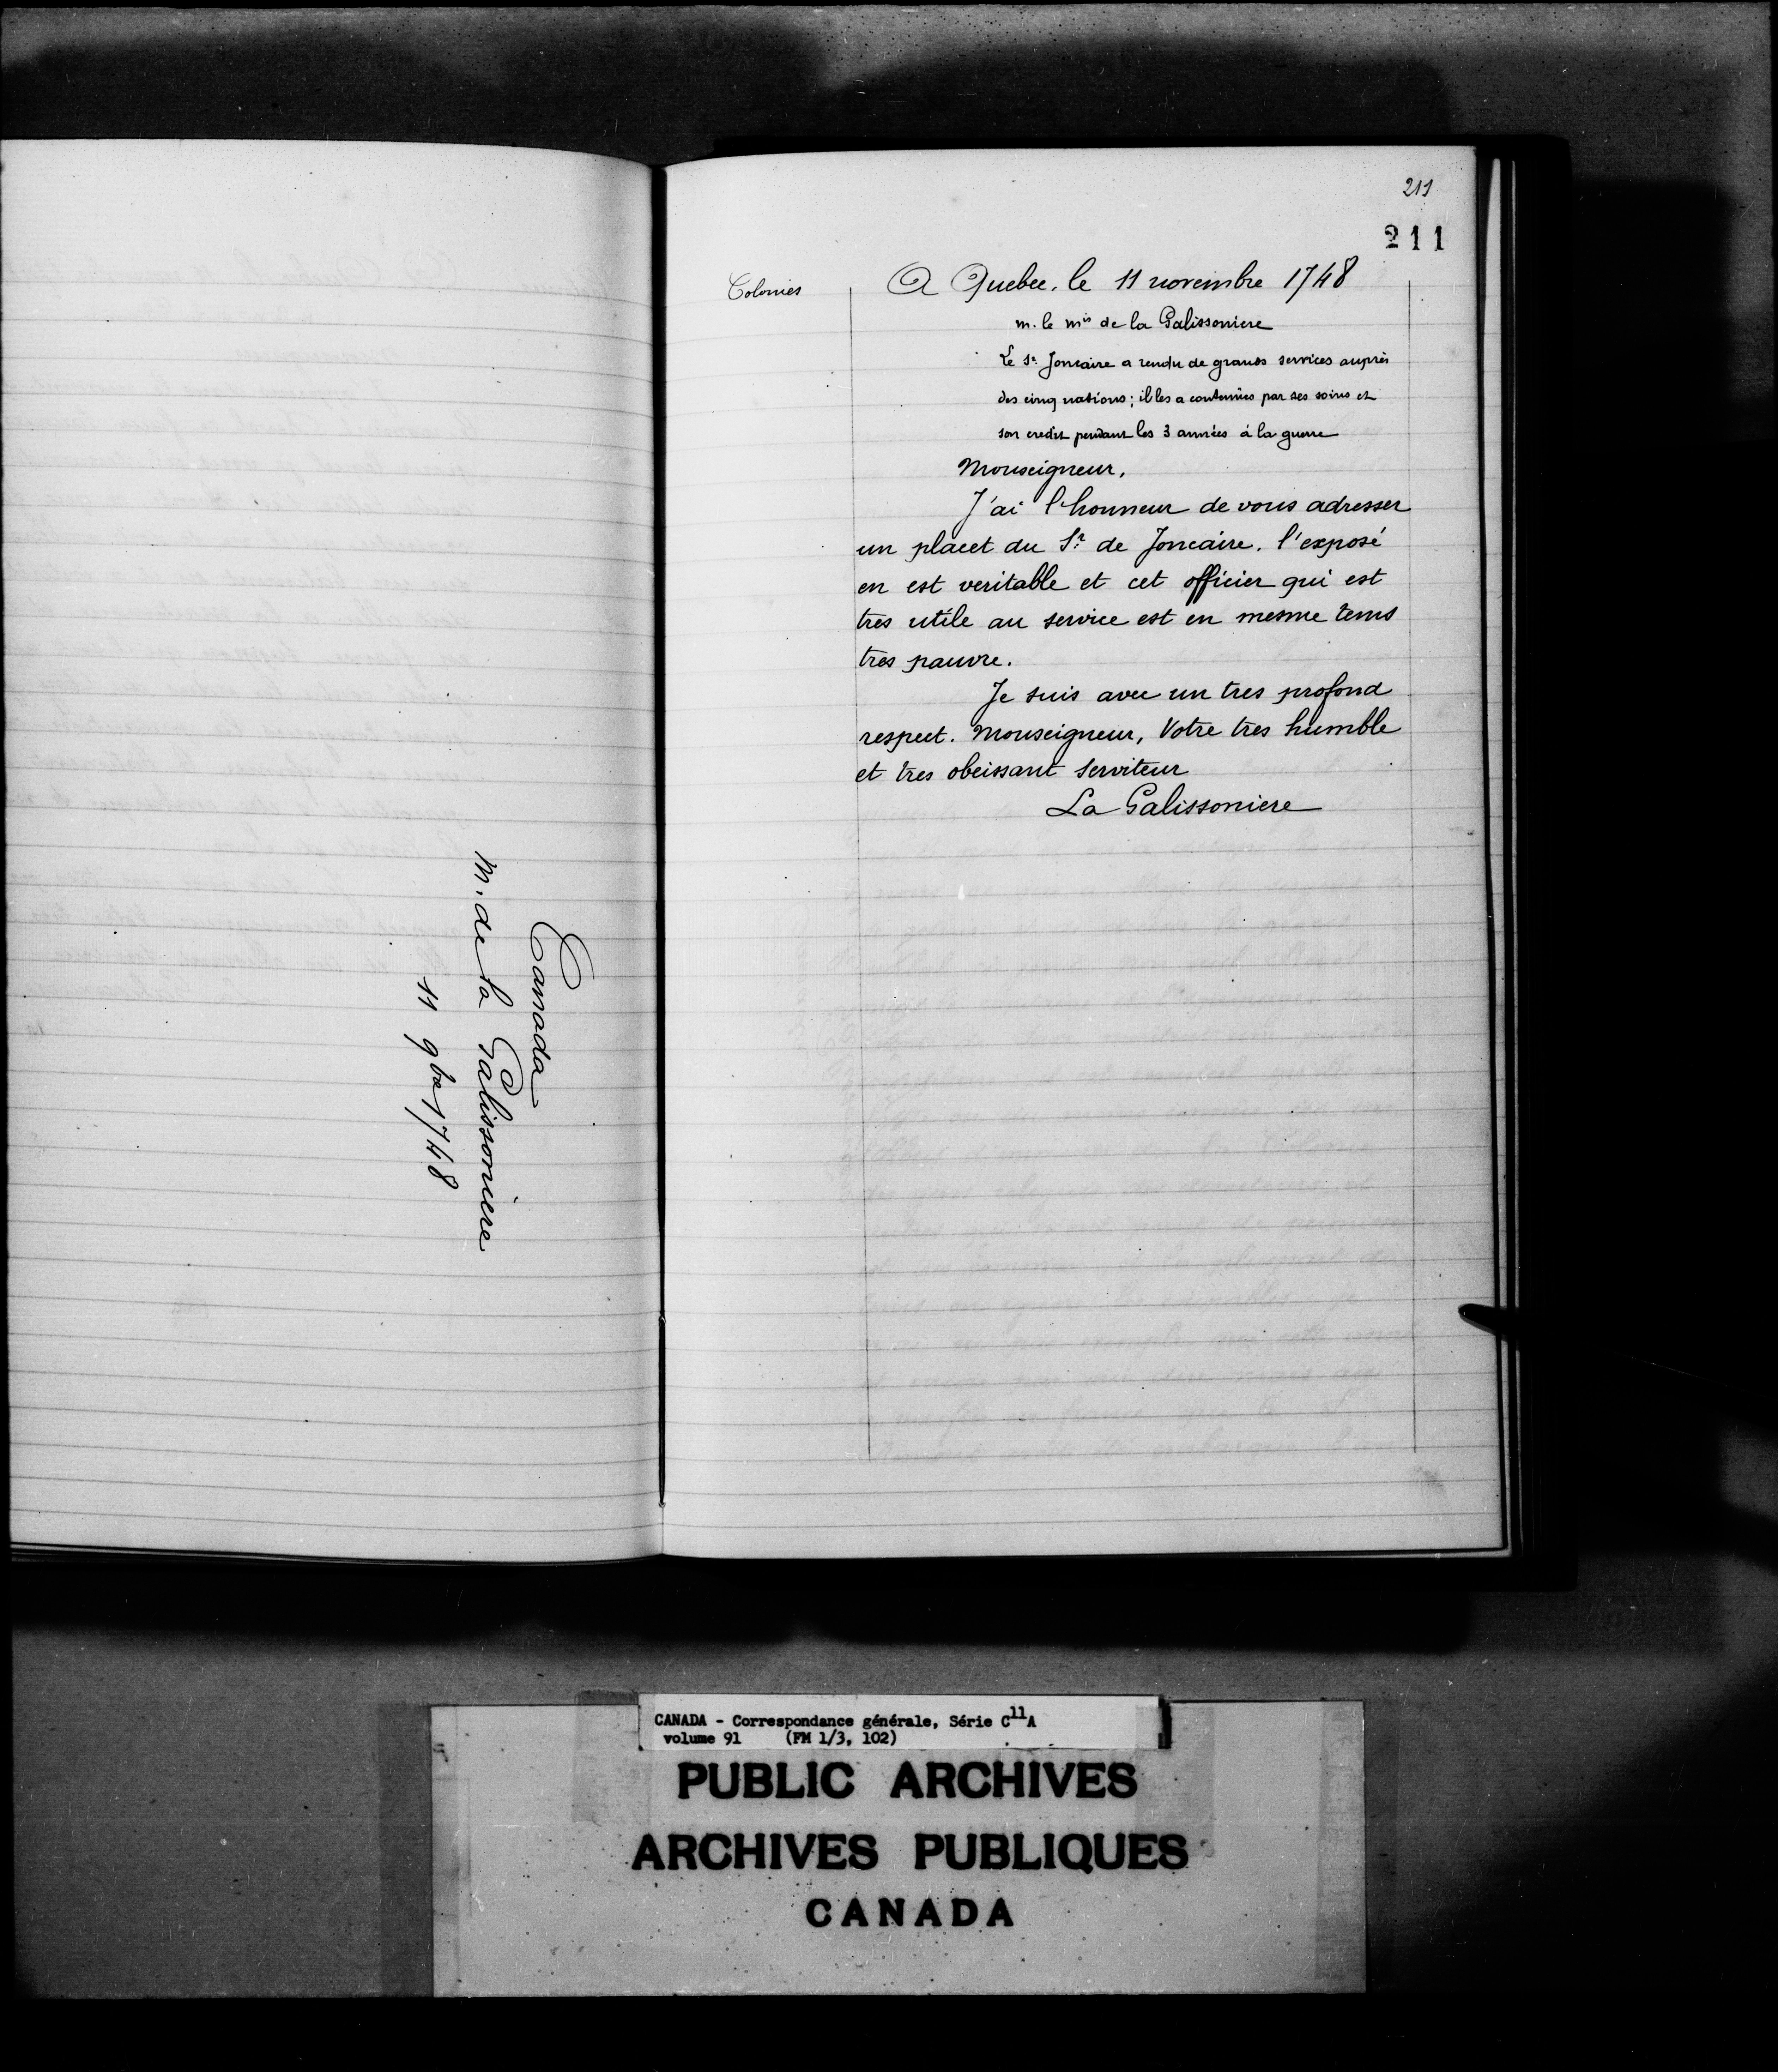 Canada
M. de la Galissoniere
11 9bre 1748
211
211
Colonies
A Quebec, le 11 novembre 1748
m. le mis de la Galissoniere
Le Sr Joncaire a rendu de grands services auprès
des cinq nations; il les a contenües par ses soins et
son credit pendant les 3 années à la guerre
Monseigneur,
J'ai l'honneur de vous adresser
un placet du Sr. de Joncaire. l'exposé
en est veritable et cet officier qui est
tres utile au service est en mesme tems
tres pauvre.
Je suis avec un tres profond
respect. Monseigneur, Votre tres humble
et tres obeissant serviteur
La Galissoniere
CANADA - Correspondance générale, Série C11A
volume 91 (FM 1/3, 102)
PUBLIC ARCHIVES
ARCHIVES PUBLIQUES
CANADA